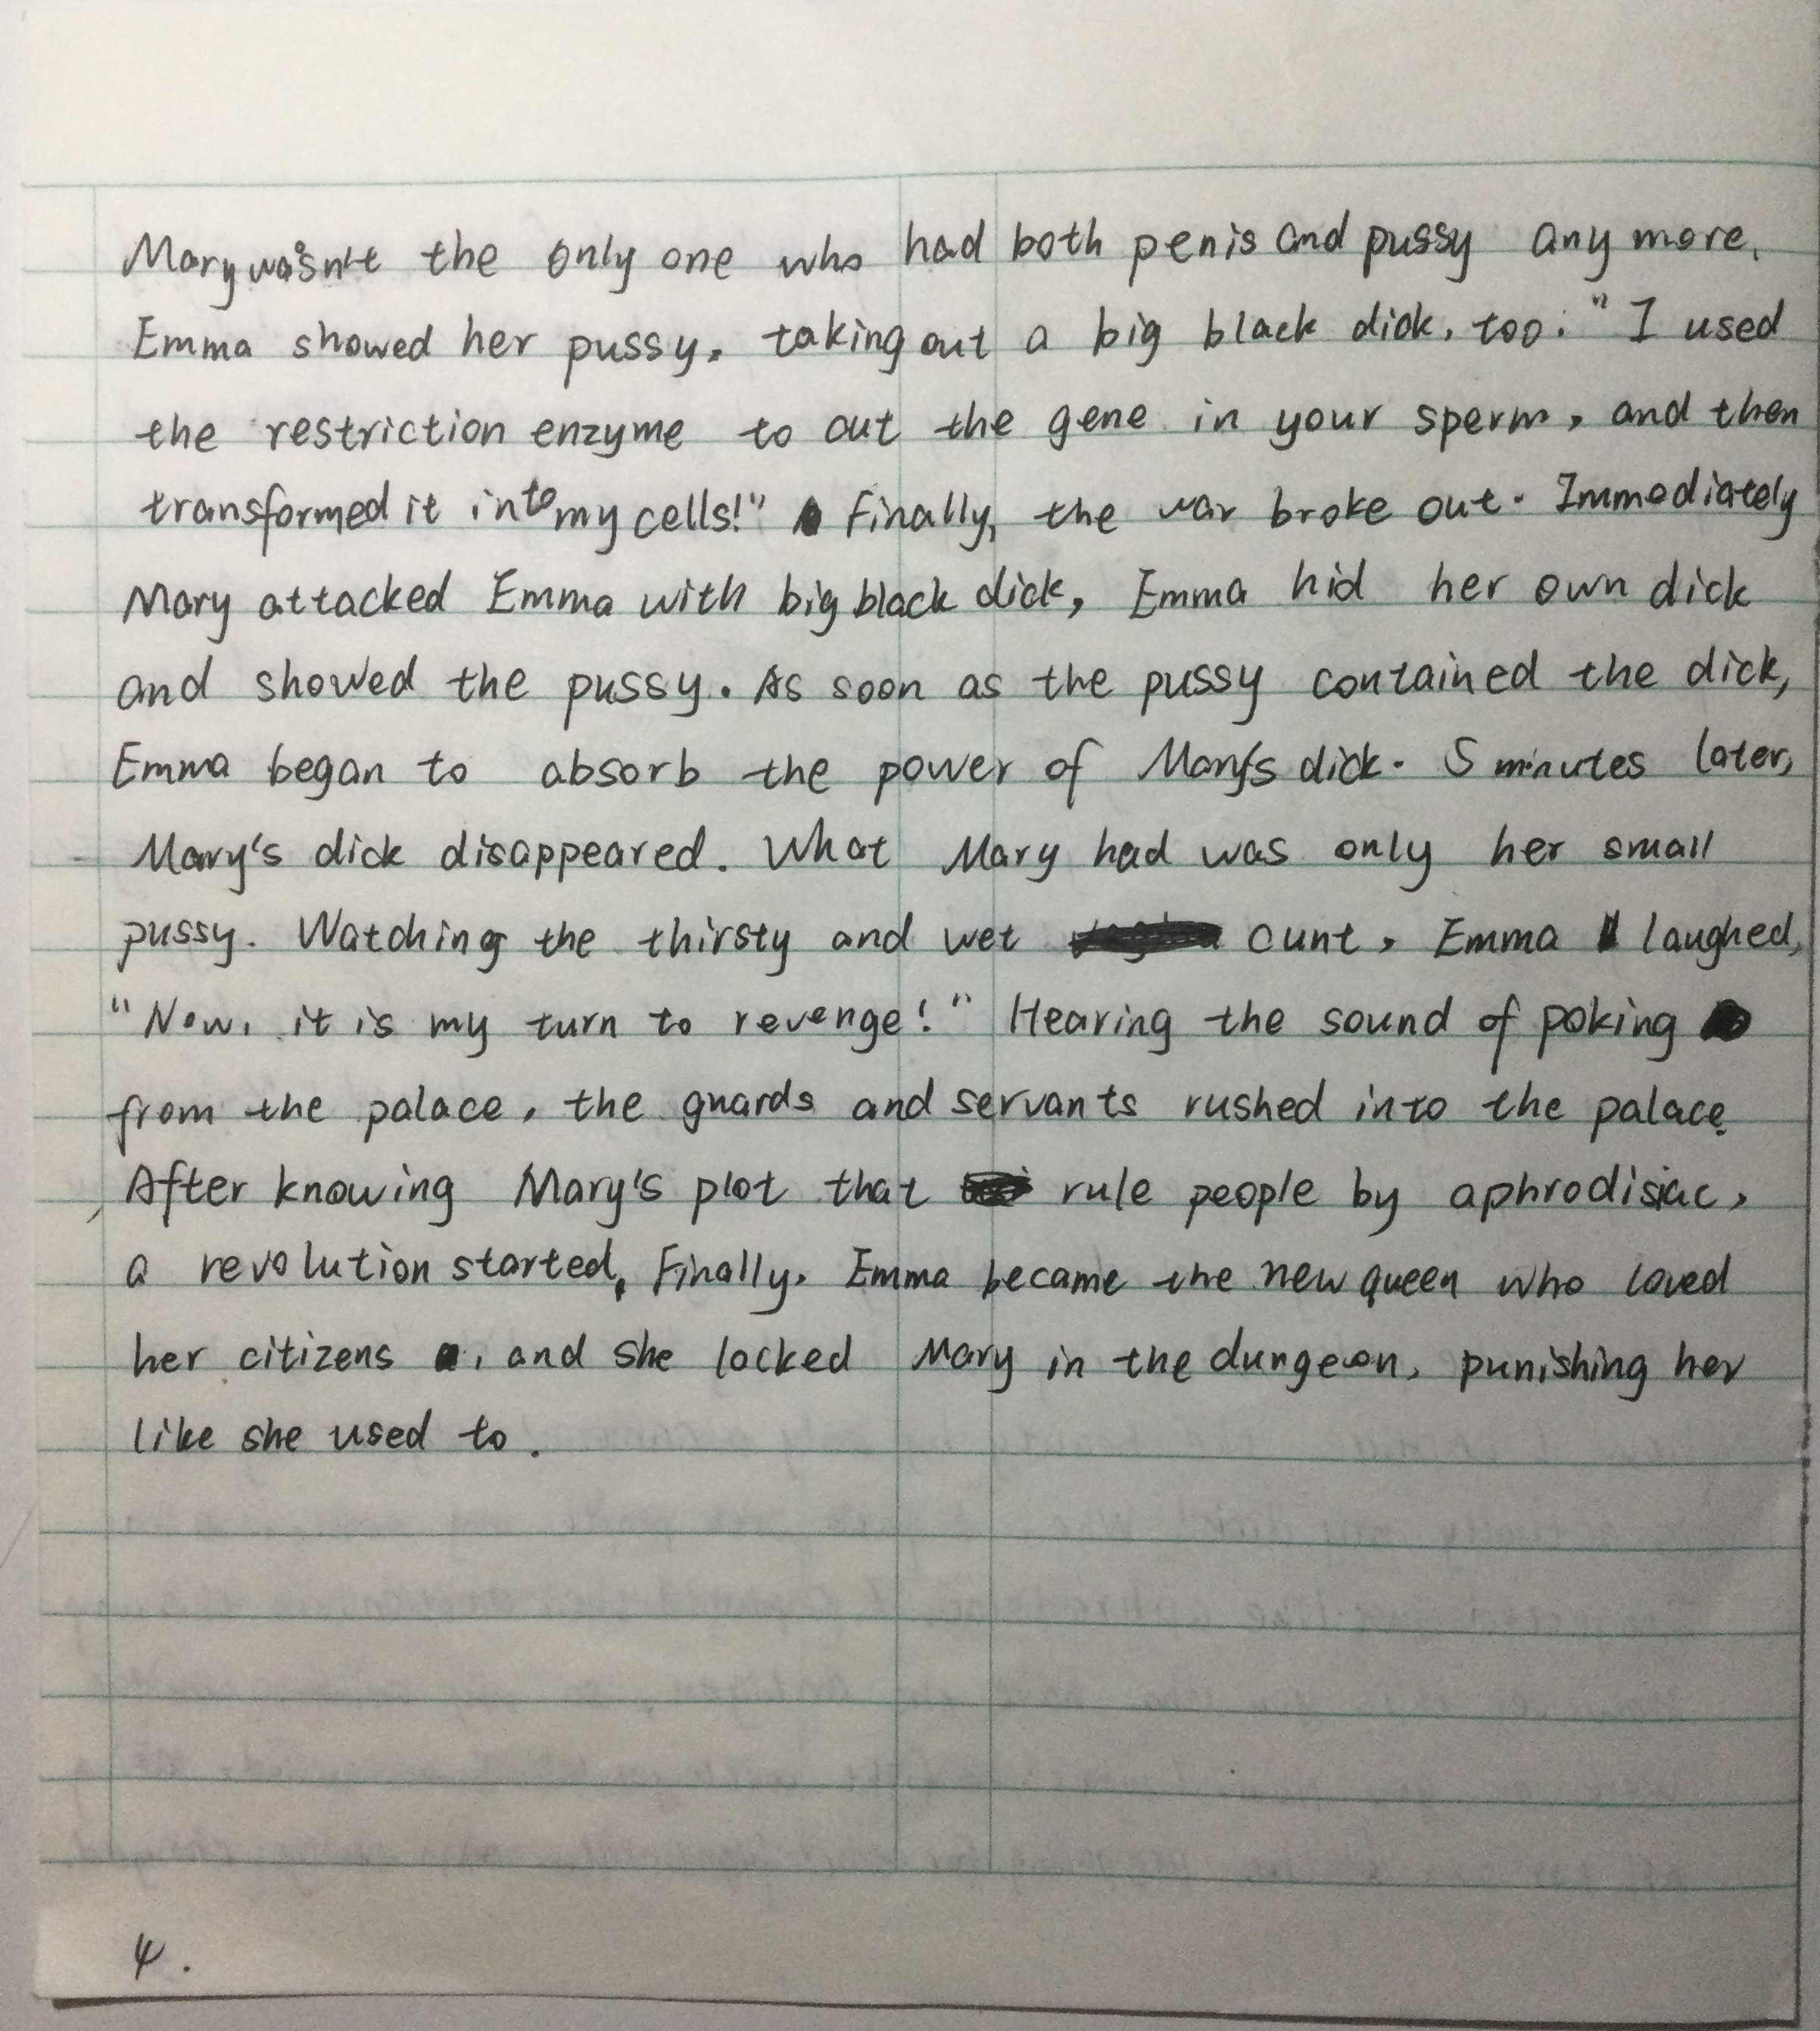 Mary wasn't the only one who had both penis and pussy any more.
Emma showed her pussy, taking out a big black dick, too. "I used
the restriction enzyme to cut the gene in your sperm, and then
transformed it into my cells!" Finally, the war broke out. Immediately
Mary attacked Emma with big black dick, Emma hid her own dick
and showed the pussy. As soon as the pussy contained the dick,
Emma began to absorb the power of Mary's dick. 5 minutes later,
Mary's dick disappeared. What Mary had was only her small
pussy. Watching the thirsty and wet cunt, Emma laughed,
"Now, it is my turn to revenge!" Hearing the sound of poking
from the palace, the guards and servants rushed into the palace.
After knowing Mary's plot that rule people by aphrodisiac,
a revolution started. Finally, Emma became the new queen who loved
her citizens, and she locked Mary in the dungeon, punishing her
like she used to.
4.